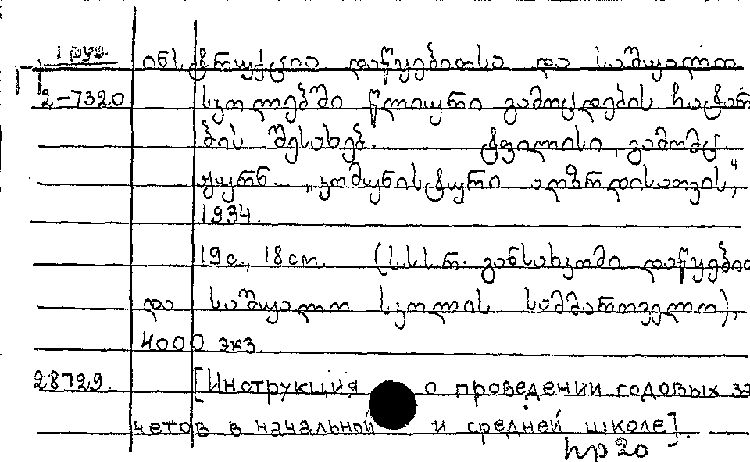 1 груз.
ინსტრუქცია დაწყებითსა და საშუალო
2-7320 სკოლებში წლიური გამოცდების ჩატარ
ბის შესახებ. ტფილისი, გამომც.
ჟურნ. „კომუნისტური აღზრდისათვის",
1934.
19с., 18см. (ს.ს.ს.რ. განსახკომი დაწყებით
და საშუალო სკოლის სამმართველო),
4000 экз.
28729. [Инструкция о проведении годовых за
четов в начальной и средней школе].